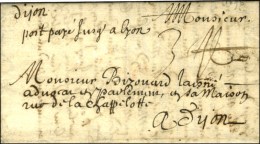 Dijon
port payé jusq a Lyon
Monsieur
Monsieur Bizouard
advocat en parlement en sa Maison
rue de la Chappelotte
A Dijon